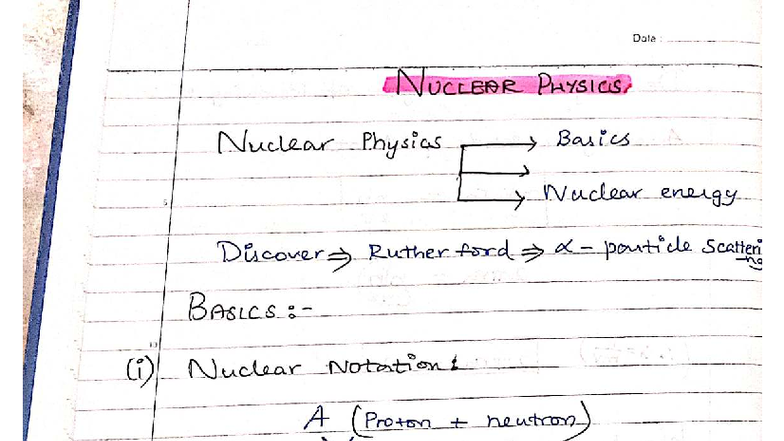 Date :
NUCLEAR PHYSICS
Nuclear Physics → Basics
→
→ Nuclear energy
Discover ⇒ Rutherford ⇒ α - particle Scattering
BASICS :-
(i) Nuclear Notation :
A (Proton + neutron)